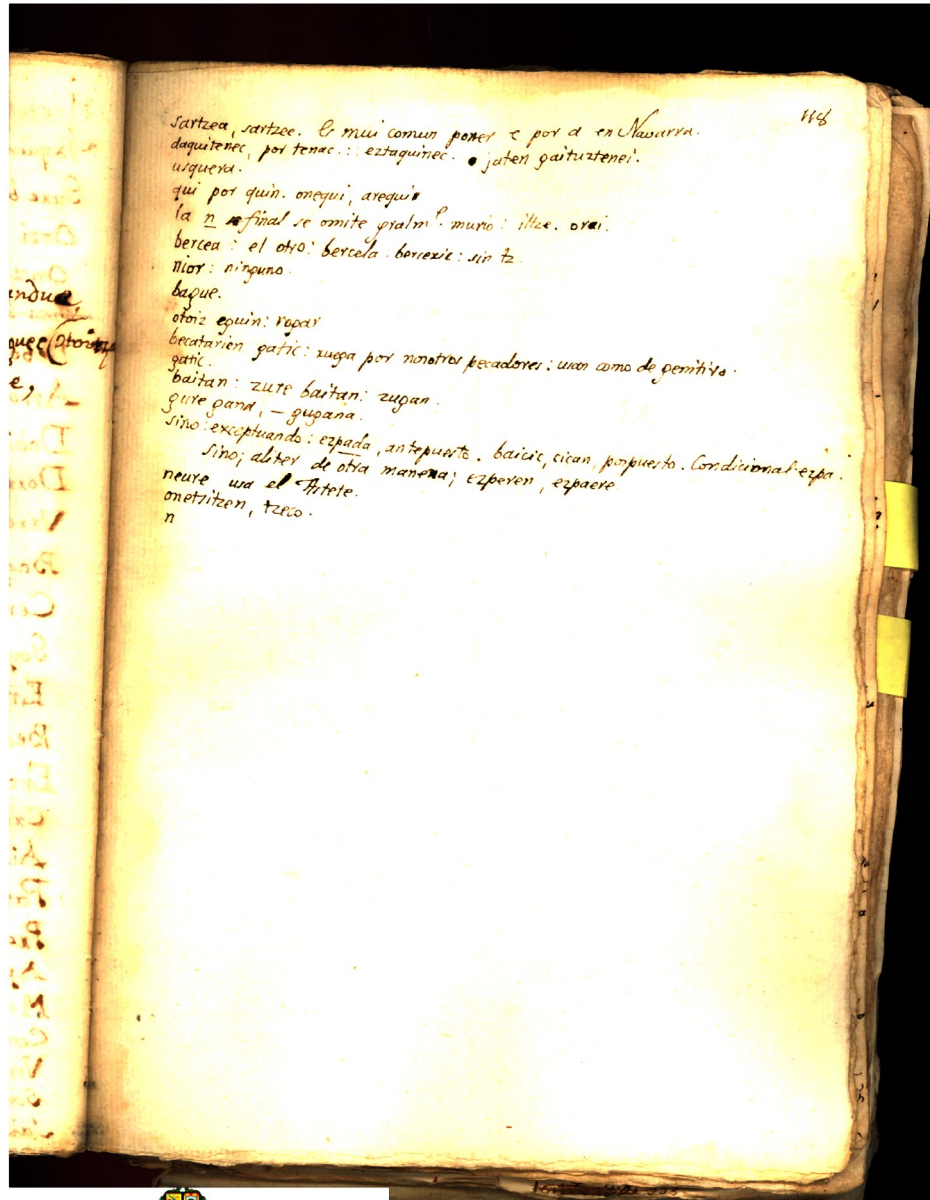 118
sartzea, sartzee. Es mui comun poner e por a en Navarra.
daquitenec, por tenac. : eztaquinec. jaten gaituztenei.
usquera.
qui por quin. onequi, arequi
la n final se omite gralmte. murio: iltze. orai.
bercea: el otro: bercela: bercexic: sin tz
nior: ninguno.
bague.
otoiz eguin: rogar
becatarien gatic: ruega por nosotros pecadores: usan como de genitivo.
gatic.
baitan: zure baitan: zugan.
gure gana, – gugana.
sino: exceptuando: ezpada, antepuesto. baicic, cican, pospuesto. Condicional ezpa.
sino; aliter de otra manera; ezperen, ezpaere
neure usa el Astete.
onetsitzen, tzeco.
n
andue,
e,